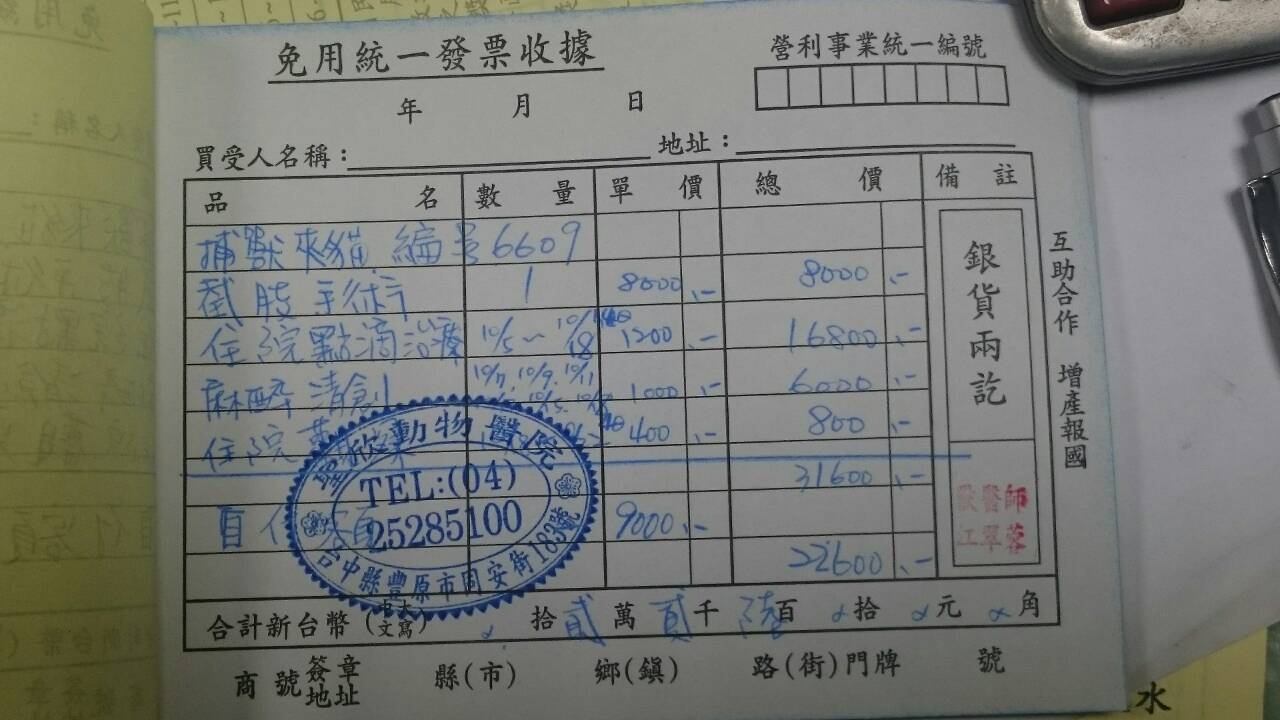 免用統一發票收據
營利事業統一編號
年 月 日
買受人名稱： 地址：
品名 數量 單價 總價 備註
捕獸夾貓 編號6609
截肢手術 1 8000.- 8000.-
住院點滴治療 10/5~10/18 1200.- 16800.-
麻醉清創 10/7. 10/9. 10/11 1000.- 6000.-
住院 400.- 800.-
31600.-
自付 9000.-
22600.-
銀貨兩訖
獸醫師
江翠蓉
互助合作 增產報國
欣動物醫院
TEL:(04)
25285100
台中縣豐原市同安街183號
合計新台幣(中文大寫) 拾貳萬貳千陸百 拾 元 角
商號簽章地址 縣(市) 鄉(鎮) 路(街)門牌 號
水